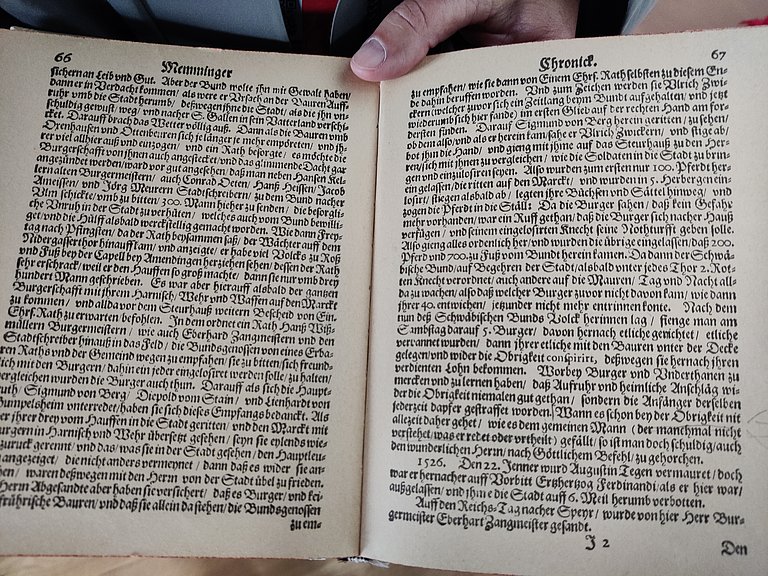 66
Memminger
sichern an Leib vnd Gut. Aber der Bund wolte jhn mit Gewalt haben/
dann er in Verdacht kommen/ als were er Vrsach an der Bauren Auff-
ruhr vmb die Stadt herumb/ deßwegen jhne die Stadt/ als die jhn vn-
schuldig gewust/ weg/ vnd nacher S. Gallen in sein Vatterland verschi-
cket. Darauff brach das Wetter völlig auß. Dann als die Bauren vmb
Ottenhausen vnd Ottenbeuren sich je länger je mehr empöreten/ vnd jh-
rer viel allhier auß vnd einzogen/ vnd ein Rath besorgte/ es möchte die
Burgerschafft von jhnen auch angestecket/ vnd das glimmende Dacht gar
angezündet werden/ ward vor gut angesehen/ daß man neben Hansen Kel-
lern alten Burgermeistern/ auch Conrad Oeren/ Hanß Heissen/ Jacob
Ameissen/ vnd Jörg Meurern Stadtschreibern/ zu dem Bund nacher
Vlm schickte/ vmb zu bitten/ 300. Mann hieher zu senden/ die besorgli-
che Vnruh in der Stadt zu verhüten/ welches auch vom Bund bewilli-
get/ vnd die Hülff alsbald werckstellig gemacht worden. Wie dann Frey-
tag nach Pfingsten/ da der Rath beysammen saß/ der Wächter auff dem
Nidergassertthor hinauff kam/ vnd anzeigte/ er habe viel Volcks zu Roß
vnd Fuß bey der Capell bey Amendingen herziehen sehen/ dessen der Rath
sehr erschrack/ weil er den Hauffen so groß machte/ dann sie nur vmb drey
hundert Mann geschrieben. Es war aber hierauff alsbald der gantzen
Burgerschafft mit jhrem Harnisch/ Wehr vnd Waffen auff den Marckt
zu kommen/ vnd allda vor dem Steurhauß weitern Bescheid von Ein.
Ehrs. Rath zu erwarten befohlen. In dem ordnet ein Rath Hanß Wiß-
müllern Burgermeistern/ wie auch Eberhard Zangmeistern vnd den
Stadtschreiber hinauß in das Feld/ die Bundsgenossen von eines Erba-
ren Raths vnd der Gemeind wegen zu empfahen/ sie zu bitten/ sich freund-
lich mit den Burgern/ dahin ein jeder eingelosiret werden solle/ zu halten/
vergleichen wurden die Burger auch thun. Darauff als sich die Haupt-
leuth/ Sigmund von Berg/ Diepold vom Stain/ vnd Lienhardt von
Gumpelsheim vnterredet/ haben sie sich dieses Empfangs bedanckt. Als
aber jhrer drey vom Hauffen in die Stadt geritten/ vnd den Marckt mit
Burgern in Harnisch vnd Wehr übersetzt gesehen/ seyn sie eylends wie-
der zuruck gerennt/ vnd das/ was sie in der Stadt gesehen/ den Hauptleu-
ten angezeiget/ die nicht anders vermeynet/ dann daß es wider sie an-
gesehen/ waren deßwegen mit den Herrn von der Stadt übel zu frieden.
Herrn Abgesandte aber haben sie versichert/ daß es Burger/ vnd kei-
ne auffrührische Bauren/ vnd daß sie allein da stehen/ die Bundsgenossen
zu em-
Chronick.
67
zu empfahen/ wie sie dann von Einem Ehrs. Rath selbsten zu diesem En-
de dahin beruffen worden. Vnd zum Zeichen werden sie Vlrich Zwi-
ckern (welcher zuvor sich ein Zeitlang beym Bundt auffgehalten/ vnd jetzt
widerumb sich hier fande) im ersten Glied auff der rechten Hand am for-
dersten finden. Darauff Sigmund von Berg herein geritten/ zu sehen/
ob dem also/ vnd als er herein kam/ sahe er Vlrich Zwickern/ vnd stige ab/
bot jhm die Hand/ vnd gieng mit jhme auf das Steurhauß zu den Her-
ren/ sich mit jhnen zu vergleichen/ wie die Soldaten in die Stadt zu brin-
gen vnd einzulosiren seyen. Also wurden zum ersten nur 100. Pferdt her-
ein gelassen/ die ritten auf den Marckt/ vnd wurden in 5. Herbergen ein-
losirt/ stiegen alsbald ab/ legten jhre Büchsen vnd Sättel hinweg/ vnd
zogen die Pferdt in die Ställ: Da die Burger sahen/ daß kein Gefahr
mehr vorhanden/ war ein Ruff gethan/ daß die Burger sich nacher Hauß
verfügen/ vnd seinem eingelosirten Knecht seine Notturfft geben solle.
Also gieng alles ordenlich her/ vnd wurden die übrige eingelassen/ daß 200.
Pferd vnd 700. zu Fuß vom Bundt herein kamen. Da dann der Schwä-
bische Bund/ auf Begehren der Stadt/ alsbald vnter jedes Thor 2. Rot-
ten Knecht verordnet/ auch andere auf die Mauren/ Tag vnd Nacht all-
da zu wachen/ also daß welcher Burger zuvor nicht davon kam/ wie dann
jhrer 40. entwichen/ jetzunder nicht mehr entrinnen konte. Nach dem
nun deß Schwäbischen Bunds Volck herinnen lag/ fienge man am
Sambstag darauf 5. Burger/ davon hernach etliche gerichtet/ etliche
verbannet wurden/ dann jhrer etliche mit den Bauren vnter der Decke
gelegen/ vnd wider die Obrigkeit conspirirt, deßwegen sie hernach jhren
verdienten Lohn bekommen. Worbey Burger vnd Vnderthanen zu
mercken vnd zu lernen haben/ daß Aufruhr vnd heimliche Anschläg wi-
der die Obrigkeit niemalen gut gethan/ sondern die Anfänger derselben
jederzeit dapfer gestraffet worden. Wann es schon bey der Obrigkeit nit
allezeit daher gehet/ wie es dem gemeinen Mann (der manchmal nicht
verstehet/ was er redet oder vrtheilt) gefällt/ so ist man doch schuldig/ auch
den wunderlichen Herrn/ nach Göttlichem Befehl/ zu gehorchen.
1526. Den 22. Jenner wurd Augustin Tegen vermauret/ doch
war er hernacher auff Vorbitt Ertzhertzog Ferdinandi/ als er hier war/
außgelassen/ vnd jhme die Stadt auff 6. Meil herumb verbotten.
Auff den Reichs-Tag nacher Speyr/ wurde von hier Herr Bur-
germeister Eberhart Zangmeister gesandt.
J 2
Den